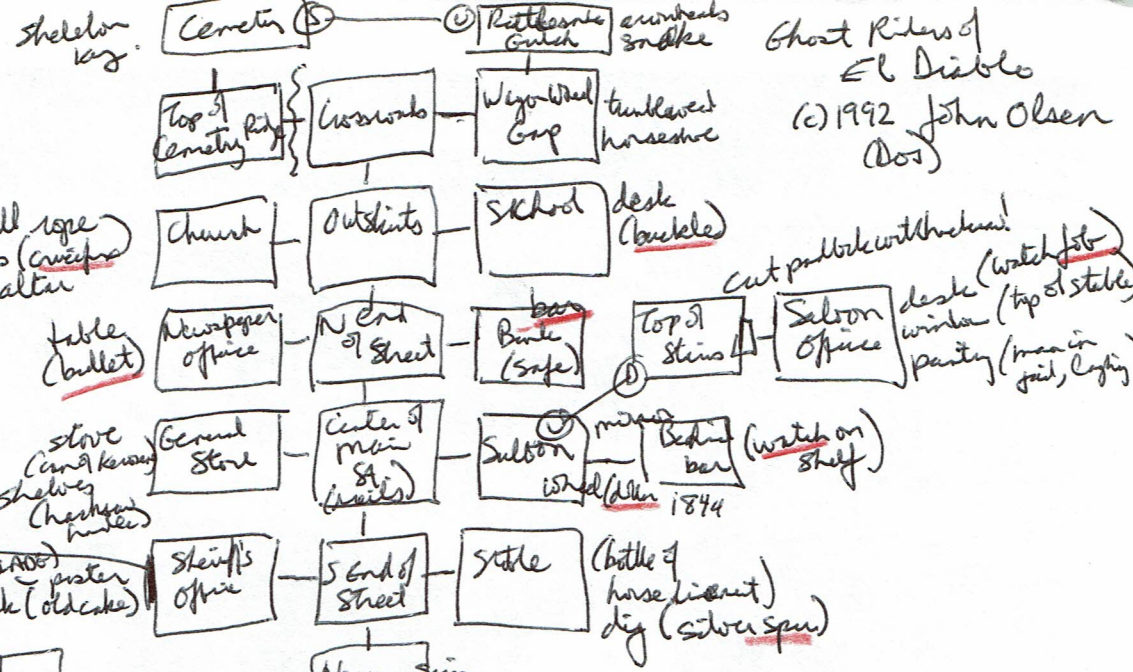 Skeleton
key.
Cemetery
S
U
Rattlesnake
Gulch
arrowheads
snake
Ghost Riders of
El Diablo
(c) 1992 John Olsen
(DOS)
Top of
Cemetery Ridge
Crossroads
Wagon Wheel
Gap
tumbleweed
horseshoe
rope
(crucifix)
altar
Church
Outskirts
School
desk
(buckle)
cut padlock with hacksaw!
table
(bullet)
Newspaper
Office
N End
of Street
bar
Bank
(safe)
Top of
Stairs
D
Saloon
Office
desk (watch fob)
window (top of stable)
painting (man in
jail,
stove
(can of kerosene)
shelves
(hacksaw
General
Store
Center of
Main
St
(nails)
U
Saloon
wheel (dollar
mirror
Behind
bar
1844
(watch on
shelf)
poster
(old cake)
Sheriff's
Office
S End of
Street
Stable
(bottle of
horse liniment)
dig (silver spur)